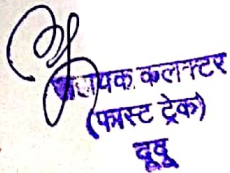 सहायक कलक्टर
(फास्ट ट्रेक)
दूदू